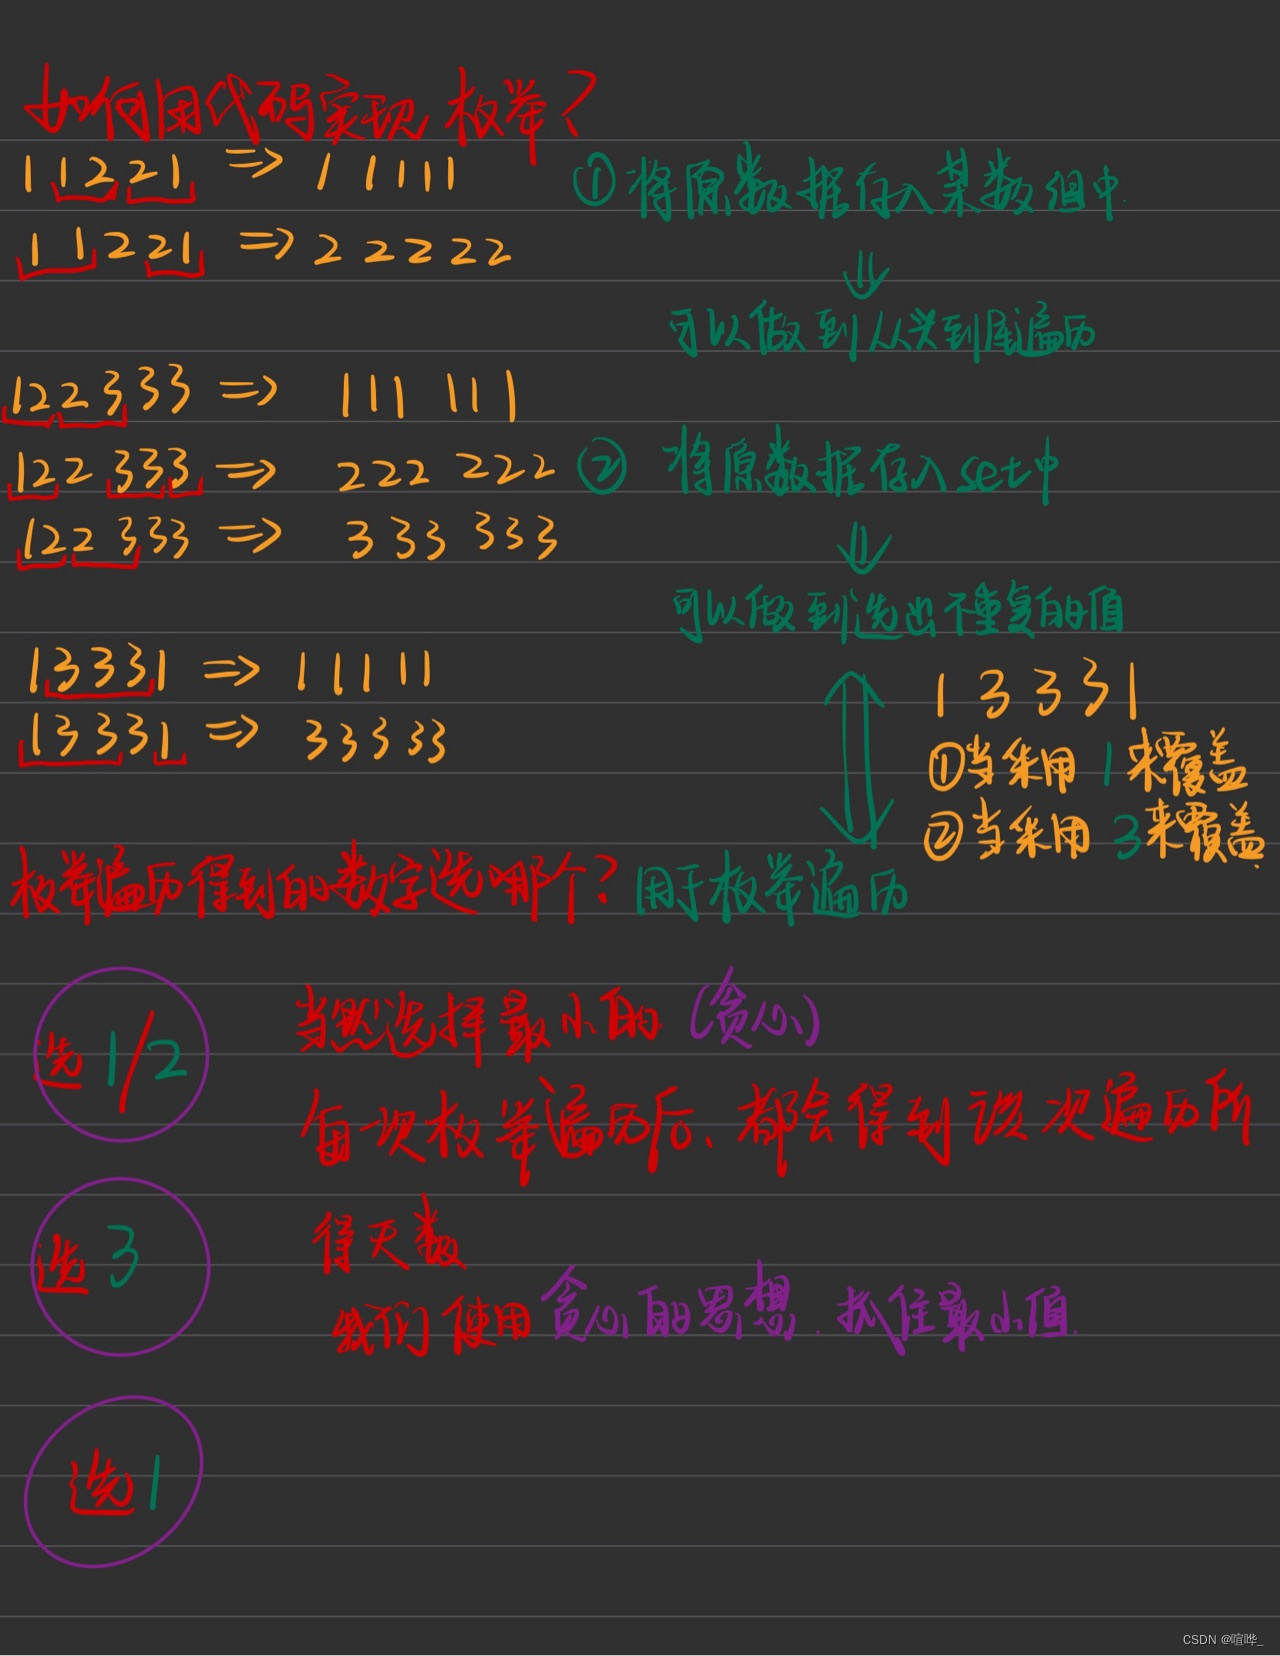 如何用代码实现枚举？
11221 => 11111
11221 => 22222
①将原数据存入某数组中.
⇓
可以做到从头到尾遍历
122333 => 111 111
122333 => 222 222
122333 => 333 333
②将原数据存入set中
⇓
可以做到选出不重复的值
13331 => 11111
13331 => 33333
13331
①当采用1来覆盖
②当采用3来覆盖.
枚举遍历得到的数字选哪个？
用于枚举遍历
选1/2
当然选择最小的.(贪心)
每一次枚举遍历后、都会得到该次遍历所
得天数
我们使用贪心的思想.抓住最小值.
选3
选1
CSDN @喧哗_